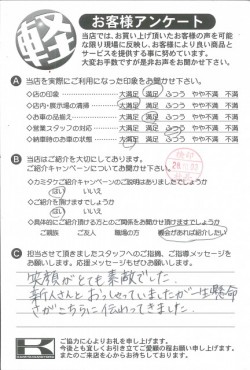 軽
お客様アンケート
当店では、お買い上げ頂いたお客様の声を可能
な限り現場に反映し、お客様により良い商品と
サービスを提供する事に努めています。
大変お手数ですが是非お声をお聞かせ下さい。
A 当店を実際にご利用になった印象をお聞かせ下さい。
◇店の印象 大満足 満足 ふつう やや不満 不満
◇店内・展示場の清掃 大満足 満足 ふつう やや不満 不満
◇お車の品揃え 大満足 満足 ふつう やや不満 不満
◇営業スタッフの対応 大満足 満足 ふつう やや不満 不満
◇納車時のお車の状態 大満足 満足 ふつう やや不満 不満
B 当店はご紹介を大切にしております。
ご紹介キャンペーンについてお聞かせ下さい。
◇カミタケご紹介キャンペーンのご説明はありましたでしょうか
はい いいえ
◇ご紹介を頂けますでしょうか
はい いいえ
◇具体的にご紹介頂ける方とのご関係をお聞かせ頂けますでしょうか
ご親族 ご友人 職場の方 機会があれば紹介したい
C 担当させて頂きましたスタッフへのご指摘、ご指導メッセージを
お願いします。応援メッセージもぜひお願いします。
笑顔がとても素敵でした。
新人さんと おっしゃっていましたが一生懸命
さがこちらに伝わってきました。
K
ご協力に心よりお礼を申し上げます。
今後とも宜しくお引き立てご愛顧の程お願い申し上げます。
またのご来店を心からお待ちしております。